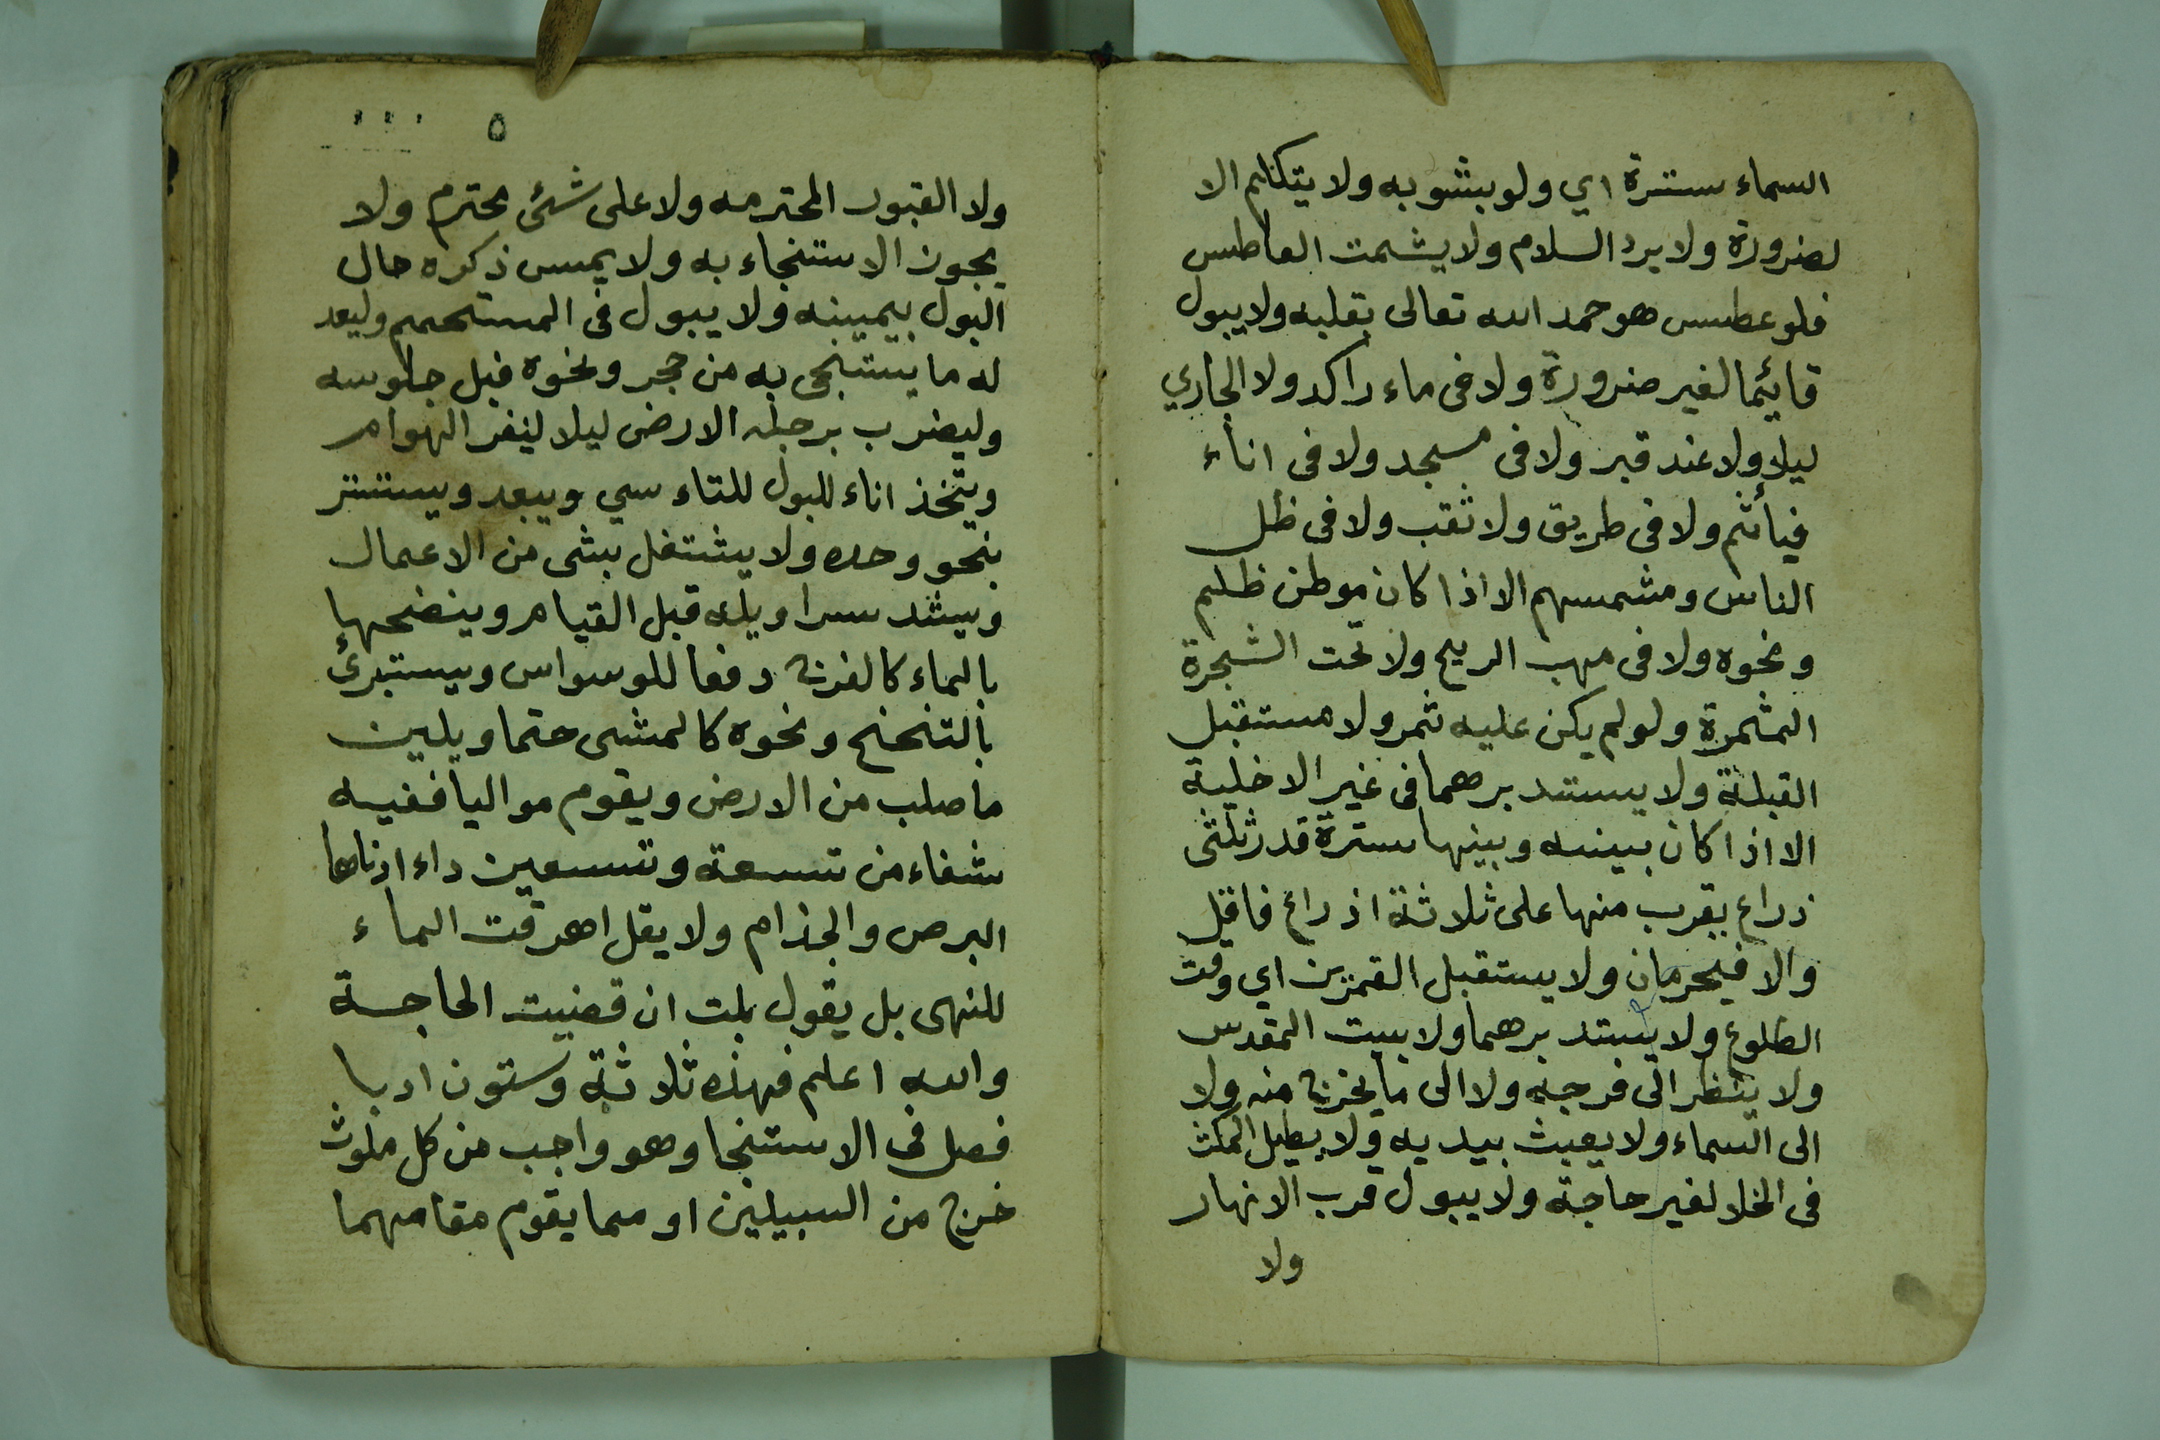 السماء سترة اي ولو بثوبه ولا يتكلم الا
لضرورة ولا يرد السلام ولا يشمت العاطس
فلو عطس هو حمد الله تعالى بقلبه ولا يبول
قائما لغير ضرورة ولا فى ماء راكد ولا الجاري
ليلا ولا عند قبر ولا فى مسجد ولا فى اناء
فيأثم ولا فى طريق ولا ثقب ولا فى ظل
الناس ومشمسهم الا اذا كان موطن ظلم
ونحوه ولا فى مهب الريح ولا تحت الشجرة
المثمرة ولو لم يكن عليه ثمر ولا مستقبل
القبلة ولا يستدبرهما فى غير الاخلية
الا اذا كان بينه وبينها سترة قدر ثلثى
ذراع بقرب منها على ثلاثة اذراع فاقل
والا فيحرمان ولا يستقبل القمرين اي وقت
الطلوع ولا يستدبرهما ولا بيت المقدس
ولا ينظر الى فرجه ولا الى ما يخرج منه ولا
الى السماء ولا يعبث بيديه ولا يطيل المكث
فى الخلا لغير حاجة ولا يبول قرب الانهار
ولا
٥
ولا القبور المحترمه ولا على شئ محترم ولا
يجوز الاستنجاء به ولا يمس ذكره حال
البول بيمينه ولا يبول فى المستحمم وليعد
له ما يستنجى به من حجر ونحوه قبل جلوسه
وليضرب برجله الارض ليلا لينفر الهوام
ويتخذ اناء للبول للتاء سي ويبعد ويستتر
بنحو وحده ولا يشتغل بشى من الاعمال
ويشد سراويله قبل القيام وينضحها
بالماء كالفرج دفعا للوسواس ويستبرئ
بالتنحنح ونحوه كالمشى حتما ويلين
ما صلب من الارض ويقوم مواليا ففيه
شفاء من تسعة وتسعين داء ادناها
البرص والجذام ولا يقل اهرقت الماء
للنهى بل يقول بلت ان قضيت الحاجة
والله اعلم فهذه ثلاثة وستون ادبا
فصل فى الاستنجا وهو واجب من كل ملوث
خرج من السبيلين او مما يقوم مقامهما